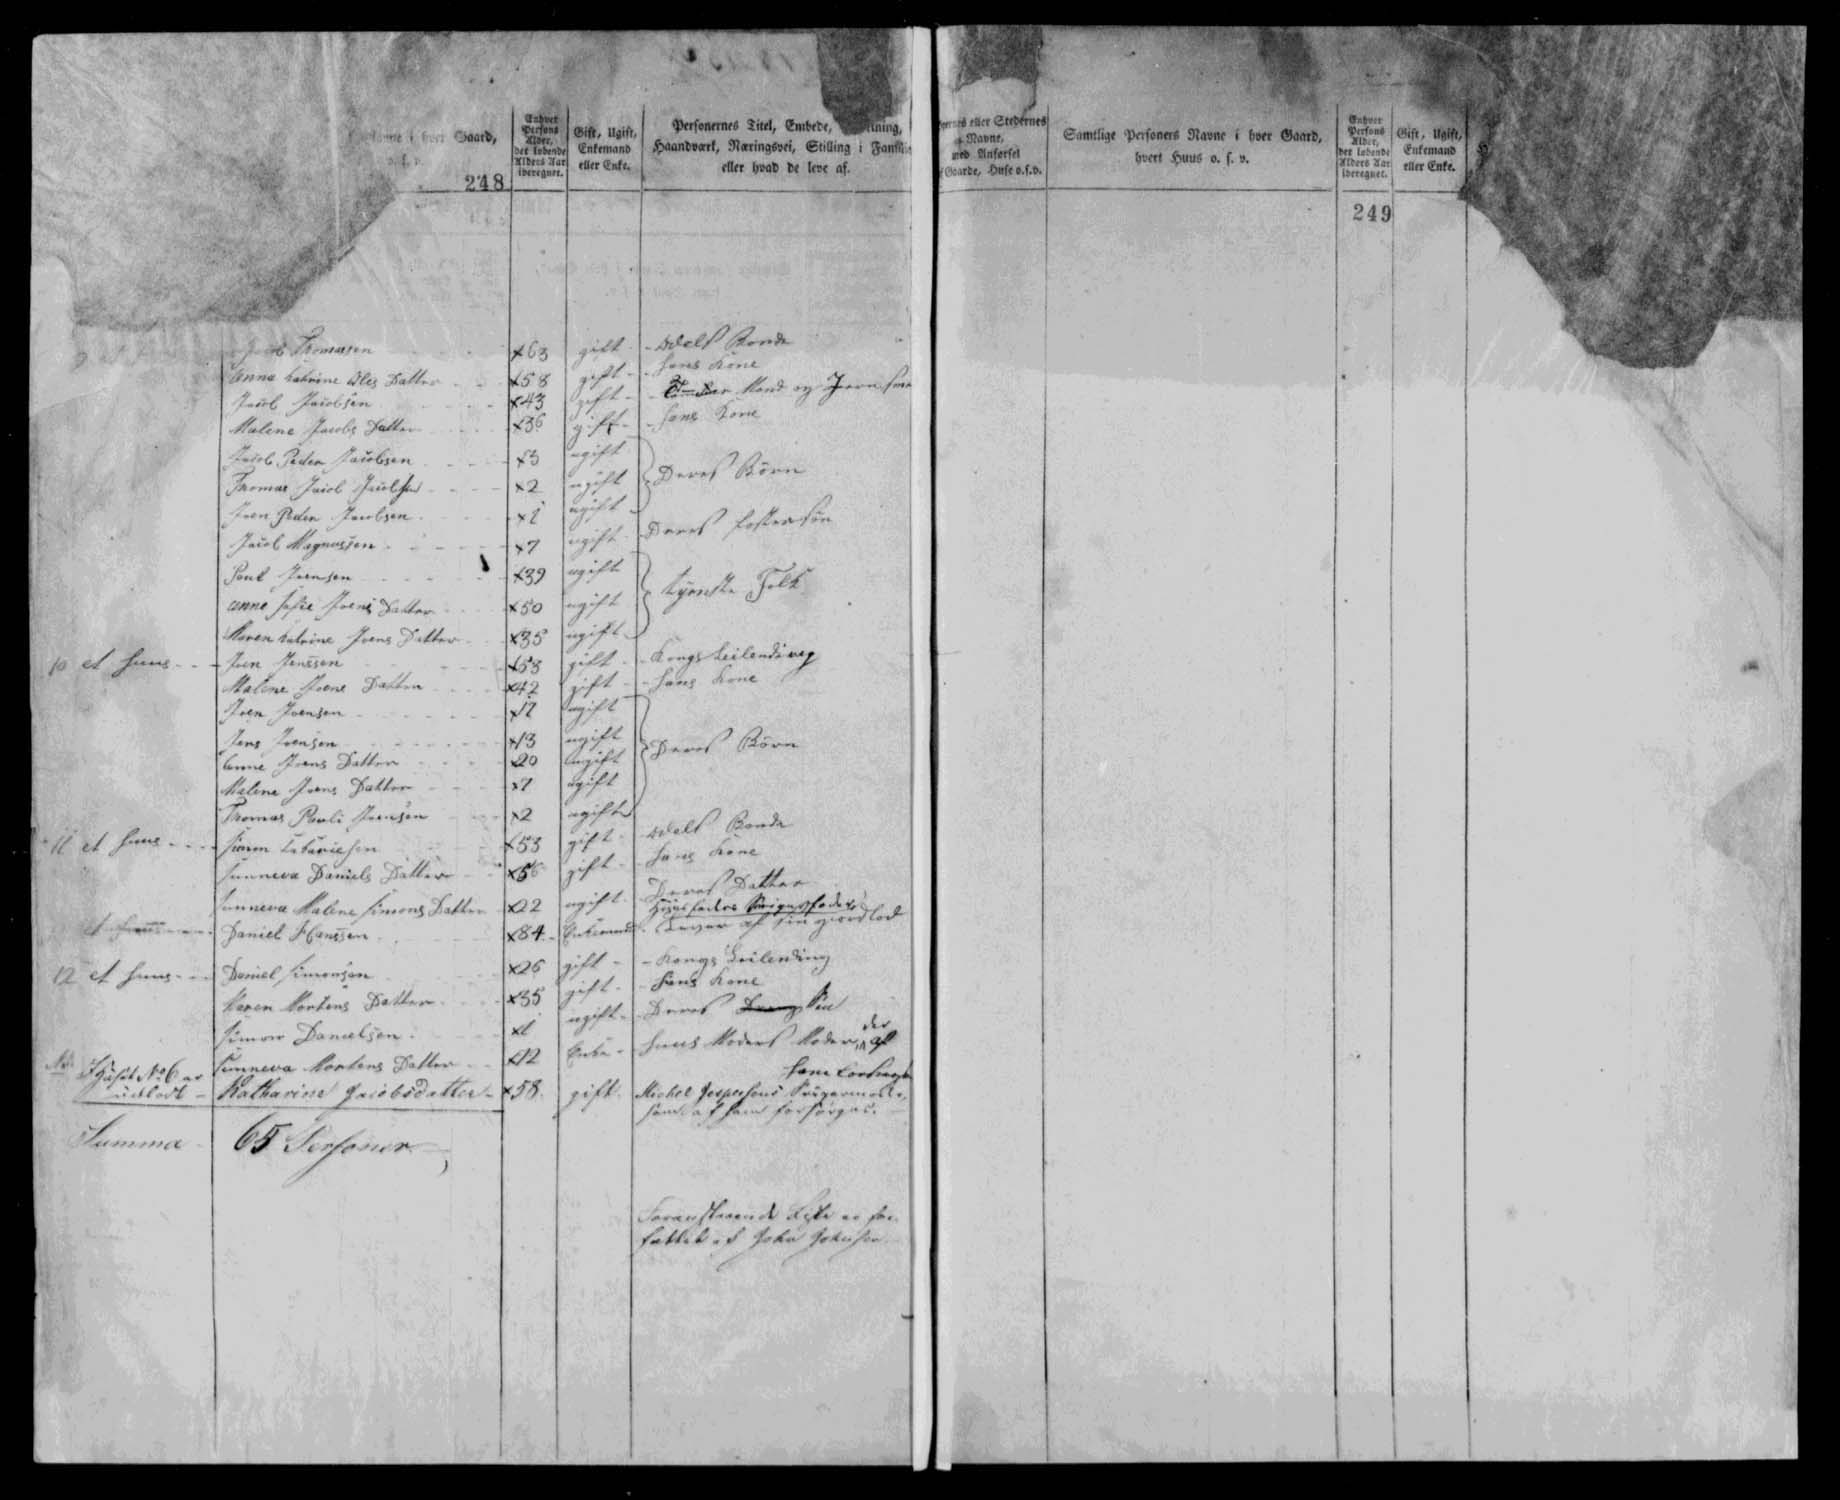 Navne i hver Gaard,
o. s. v.
248
Enhver Persons Alder, det løbende Alders Aar iberegnet.
Gift, Ugift, Enkemand eller Enke.
Personernes Titel, Embede,
Haandværk, Næringsvei, Stilling i Familien
eller hvad de leve af.
Thomassen ×63 gift - Odels Bonde
Anna Katrine Oles Datter ×58 gift - hans Kone
Jacob Jacobsen ×43 gift - Mand og
Malene Jacobs Datter ×36 gift - hans Kone
Jacob Peder Jacobsen ×3 ugift
Thomas Jacob Jacobsen ×2 ugift } Deres Börn
Joen Peder Jacobsen ×1 ugift
Jacob Magnussen ×7 ugift - Deres fostersön
Poul Joensen ×39 ugift
Anne Sofie Joens Datter ×50 ugift } tyenste Folk
Maren Katrine Joens Datter ×35 ugift
10 et huus - Joen Jenssen ×58 gift - Kongs Leilending
Malene Joens Datter ×42 gift - hans Kone
Joen Joensen ×17 ugift
Jens Joensen ×13 ugift } Deres Börn
Anne Joens Datter ×20 ugift
Malene Joens Datter ×7 ugift
Thomas Pauli Joensen ×2 ugift
11 et huus - Simon Zakariesen ×53 gift - Odels Bonde
Sunneva Daniels Datter ×56 gift - hans Kone
Sunneva Malene Simons Datter ×22 ugift - Deres Datter
Huusfaders Svigerfader
et huus Daniel Hanssen ×84 Enkemand - Lever af sin jordlod
12 et huus - Daniel Simonsen ×26 gift - Kongs Leilending
Maren Mortens Datter ×35 gift - hans Kone
Simon Danielsen ×1 ugift - Deres Sön
Sunneva Mortens Datter ×72 Enke - huus Moders Moder, der af
I Huset No 6 er
udladt - Katharine Jacobsdatter - ×58 gift - Michel Jespersens Svigermoder,
som af ham forsörges.
Summa 65 Personer
Foranstaaende Liste er for-
fattet af John Johnsen
Stedernes
Navne,
med Anførsel
af Gaarde, Huse o.s.v.
Samtlige Personers Navne i hver Gaard,
hvert Huus o. s. v.
Enhver Persons Alder, det løbende Alders Aar iberegnet.
Gift, Ugift, Enkemand eller Enke.
249